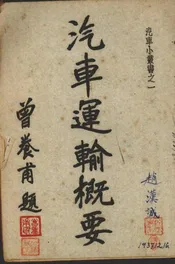 汽車小叢書之一
汽車運輸概要
曾養甫題
趙漢